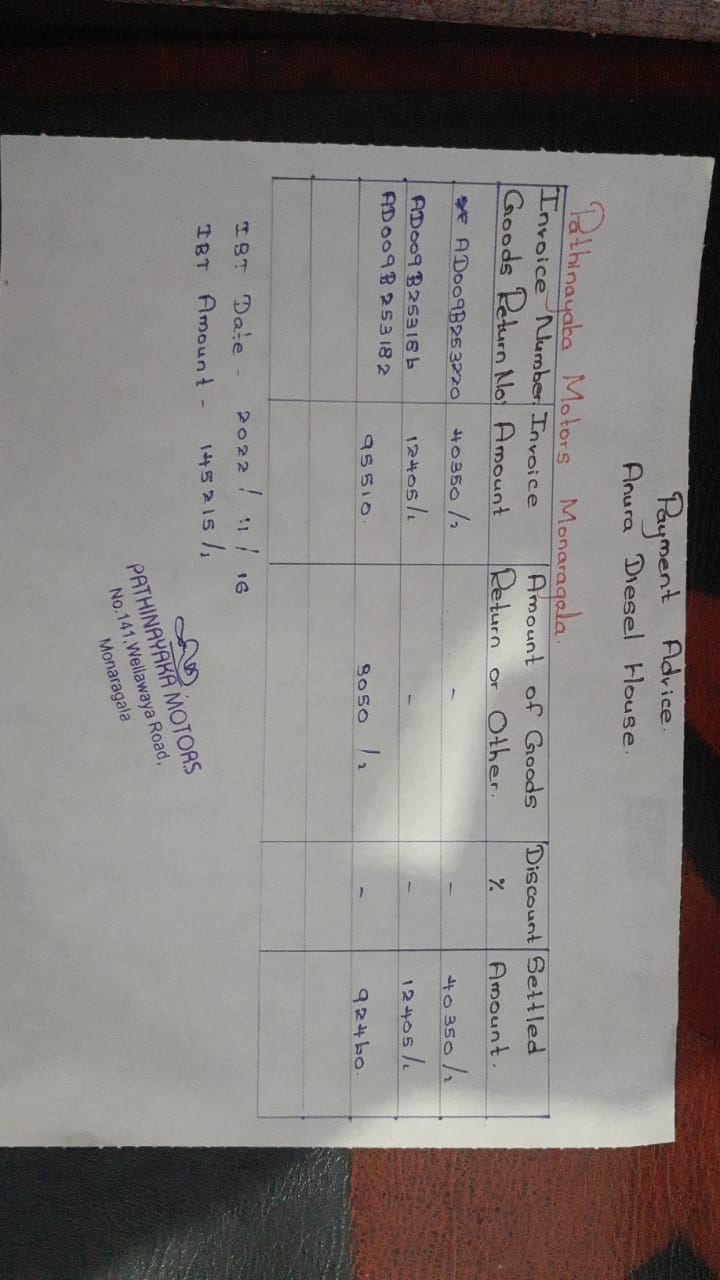 Payment Advice.
Anura Diesel House.
Pathinayaka Motors Monaragala.
Invoice Number Invoice Amount of Goods Discount Settled
Goods Return No: Amount Return or Other. % Amount.
AD009B253220 40350/= - - 40350/=
AD009B253186 12405/= - - 12405/=
AD009B253182 95510. 3050/= - 92460.
IBT Date - 2022/11/16
IBT Amount - 145215/=
PATHINAYAKA MOTORS
No.141, Wellawaya Road,
Monaragala